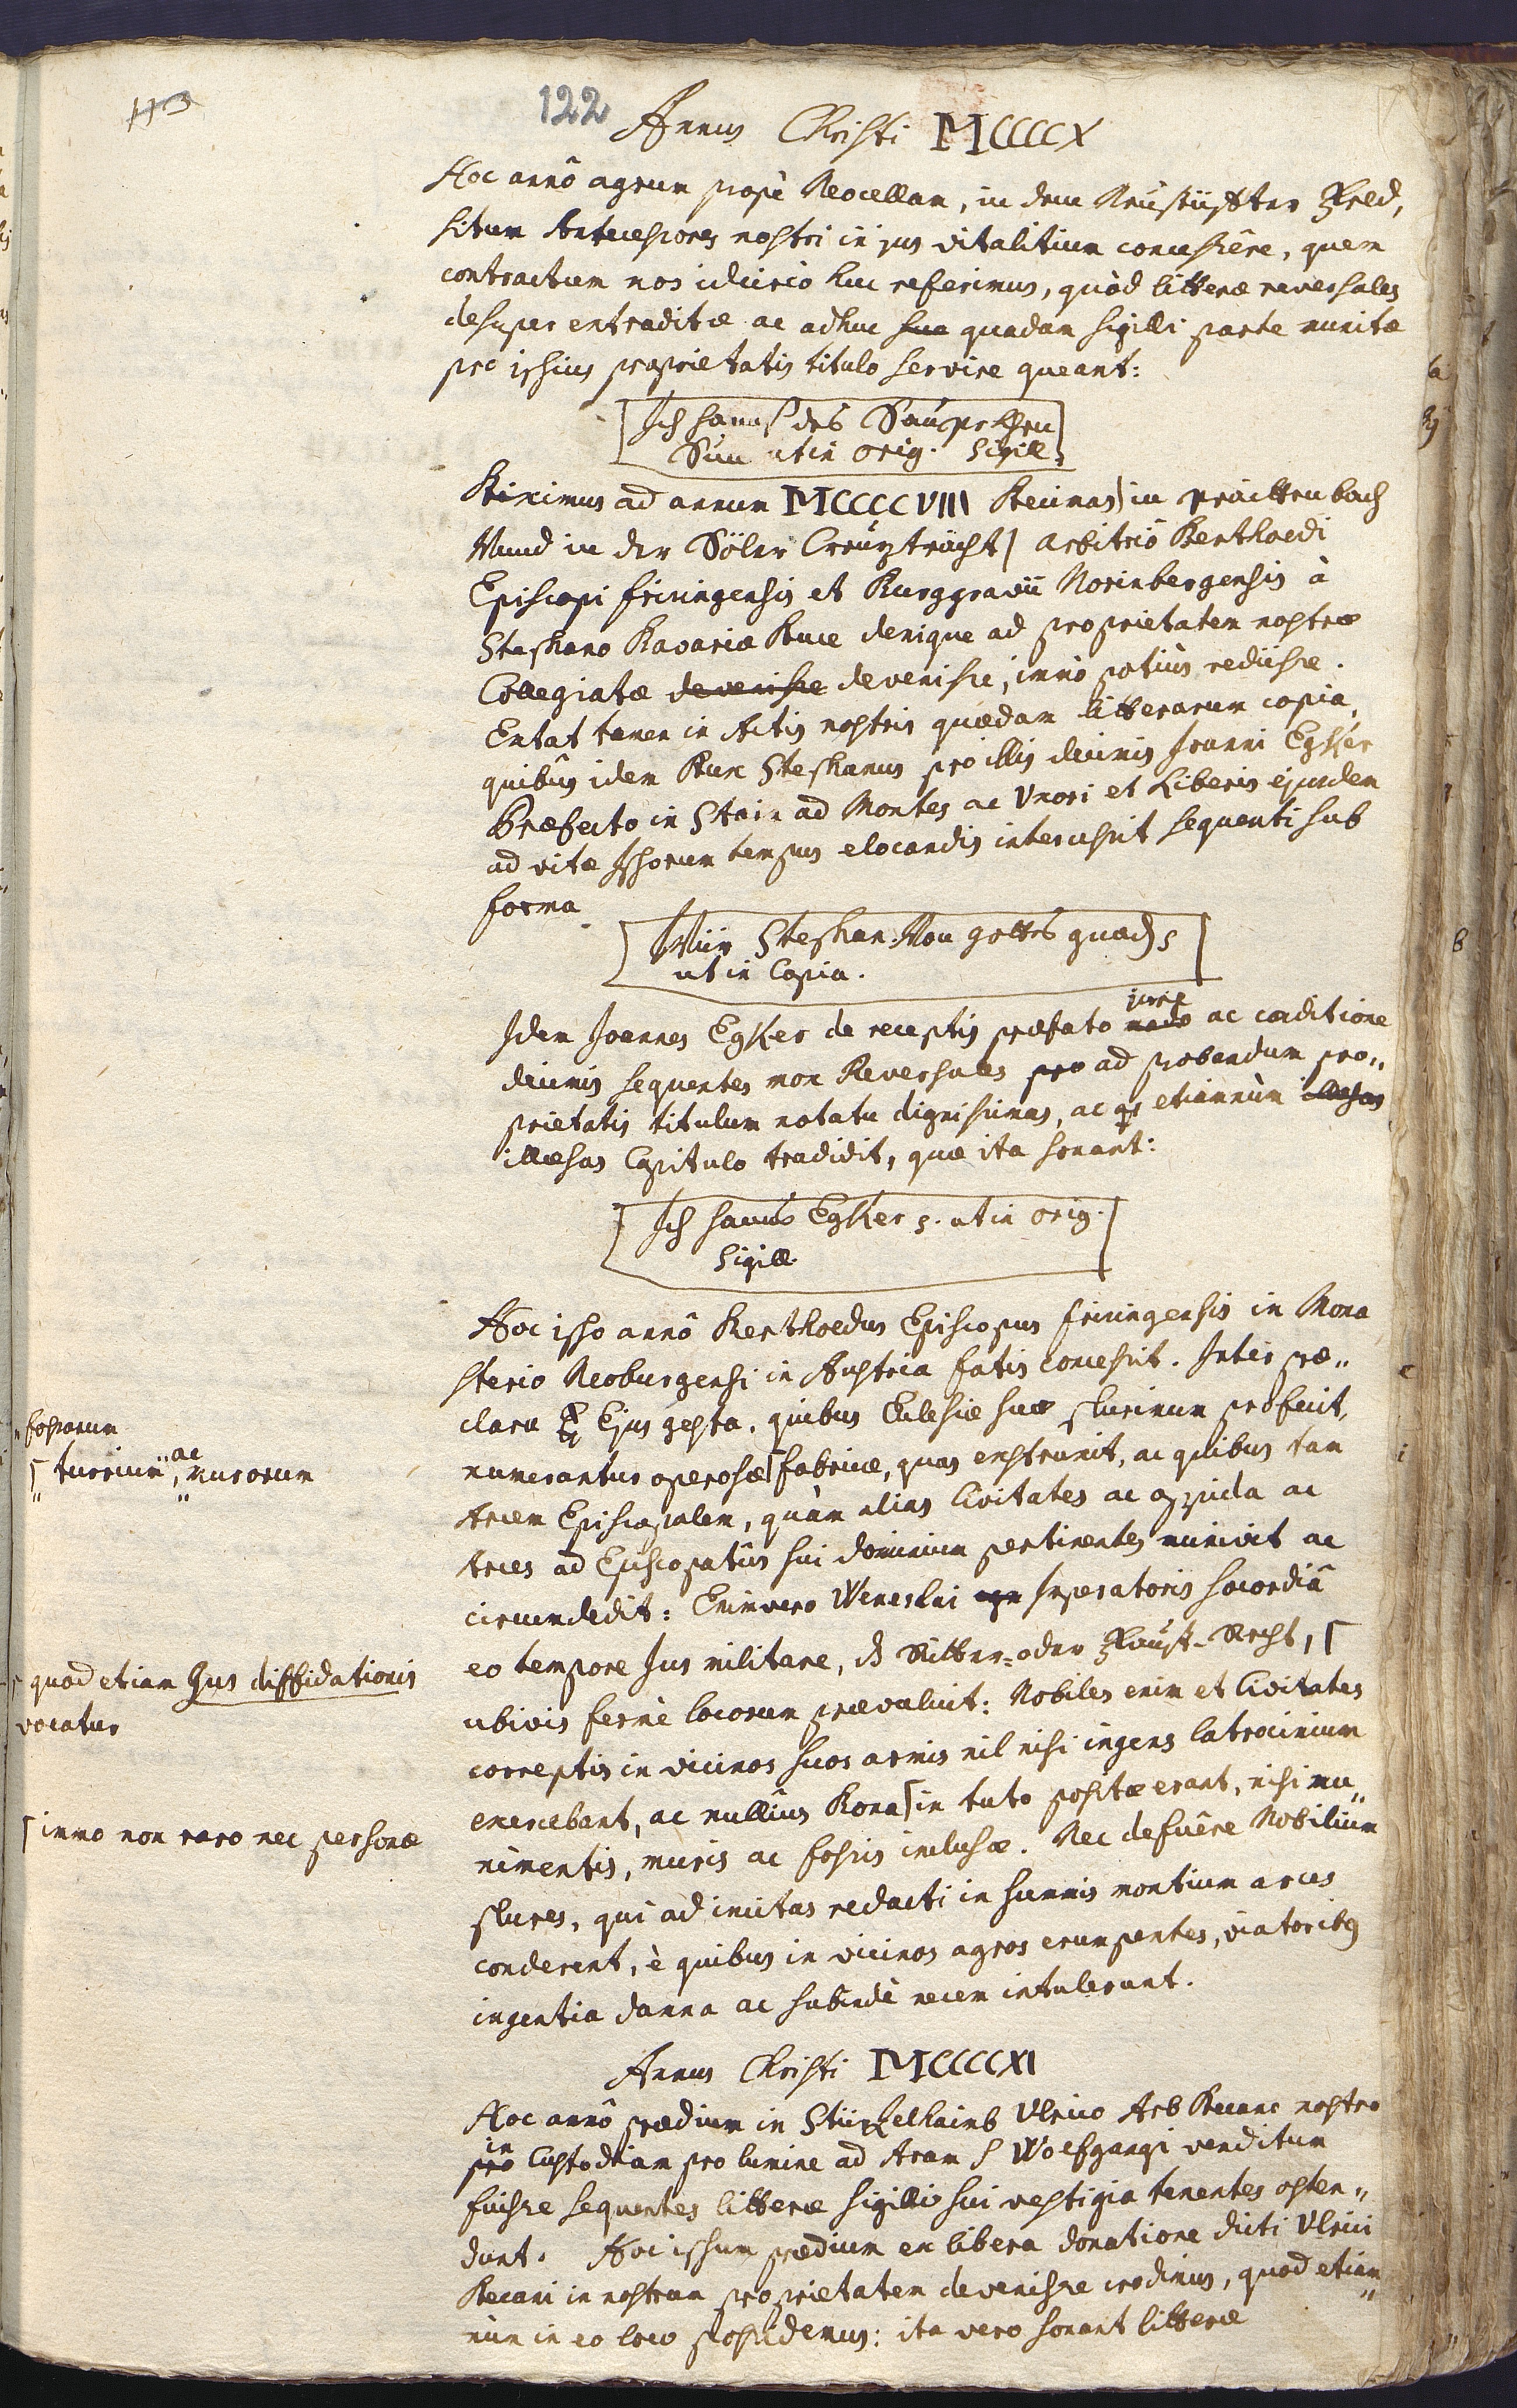 113
122
Annus Christi MCCCCX
Hoc annô agrum propè Neocellam, in dem Neustüffter Feld,
situm Antecessores nostri in jus vitalitium concessêre, quem
contractum nos idcircò huc referimus, quòd litteræ reversales
desuper extraditæ ac adhuc sua quadam sigilli parte munitæ
pro ipsius proprietatis titulo servire queant:
Ich hannß des Saur
Sun ut in orig. Sigill.
Diximus ad annum MCCCCVIII Decimas in Präittenbach
Vnnd in der Sÿler Creutztracht arbitriô Bertholdi
Episcopi frisingensis et Burggravii Norinbergensis à
Stephano Bavariæ Duce denique ad proprietatem nostræ
Collegiatæ devenisse devenisse, immò potiùs rediisse.
Extat tamen in Actis nostris quædam litterarum copia,
quibus idem Dux Stephanus pro illis decimis Joanni Egker
Præfecto in Stain ad Montes ac Vxori et Liberis ejusdem
ad vitæ Ipsorum tempus elocandis intercessit sequenti sub
forma
Wiir Stephan Von gottes gnad
ut in Copia.
jure
Idem Joannes Egker de receptis præfato modo ac conditione
decimis sequentes mox Reversales pro ad probandum pro„
prietatis titulum notatu dignissimas, ac etiamnùm illæsas
illæsas Capitulo tradidit, quæ ita sonant:
Ich hanns Egker ut in orig.
Sigill.
Hoc ipso annô Bertholdus Episcopus frisingensis in Mona
sterio Neoburgensi in Austria fatis concessit. Inter præ„
clara Ejus gesta, quibus Ecclesiæ suæ plurimum profuit,
fossarum
turrium, ac murorum
numerantur operosæ fabricæ, quas exstruxit, ac quibus tam
Arcem Episcopalem, quàm alias Civitates ac oppida ac
Arces ad Episcopatûs sui dominium pertinentes munivit ac
circumdedit: Enimvero Weneslai Imperatoris socordiâ
eo tempore Jus militare, das Ritter- oder Faust-Recht,
quod etiam Jus diffidationis
vocatur
ubivis fermè locorum prævaluit: Nobiles enim et Civitates
correptis in vicinos suos armis nil nisi ingens latrocinium
exercebant, ac nullius Bona in tuto positæ erant, nisi mu„
immo non raro nec personæ
nimentis, muris ac fossis inclusæ. Nec defuêre Nobilium
plures, qui ad incitas redacti in summis montium arces
conderent, è quibus in vicinos agros erumpentes, viatoribus
ingentia damna ac subindè necem intulerunt.
Annus Christi MCCCCXI
Hoc annô prædium in Stürzelhaimb Ulrico Arb Decano nostro
in
pro Custodiam pro lumine ad Aram S Wolfgangi venditum
fuisse sequentes litteræ sigilli sui vestigia tenentes osten„
dunt. Hoc ipsum prædium ex libera donatione dicti Ulrici
Decani in nostram proprietatem devenisse credimus, quod etiam„
nùm in eo loco possidemus: ita vero sonant litteræ